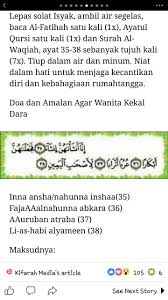 Lepas solat Isyak, ambil air segelas,
baca Al-Fatihah satu kali (1x), Ayatul
Qursi satu kali (1x) dan Surah Al-
Waqiah, ayat 35-38 sebanyak tujuh kali
(7x). Tiup dalam air dan minum. Niat
dalam hati untuk menjaga kecantikan
diri dan kebahagiaan rumahtangga.
Doa dan Amalan Agar Wanita Kekal
Dara
إِنَّا أَنْشَأْنَاهُنَّ إِنْشَاءً ﴿٣٥﴾ فَجَعَلْنَاهُنَّ
أَبْكَارًا ﴿٣٦﴾ عُرُبًا أَتْرَابًا ﴿٣٧﴾ لِأَصْحَابِ الْيَمِينِ ﴿٣٨﴾
Inna ansha/nahunna inshaa(35)
FajaAAalnahunna abkara (36)
AAuruban atraba (37)
Li-as-habi alyameen (38)
Maksudnya:
Kifarah Media's article
105
6
See Next Story >